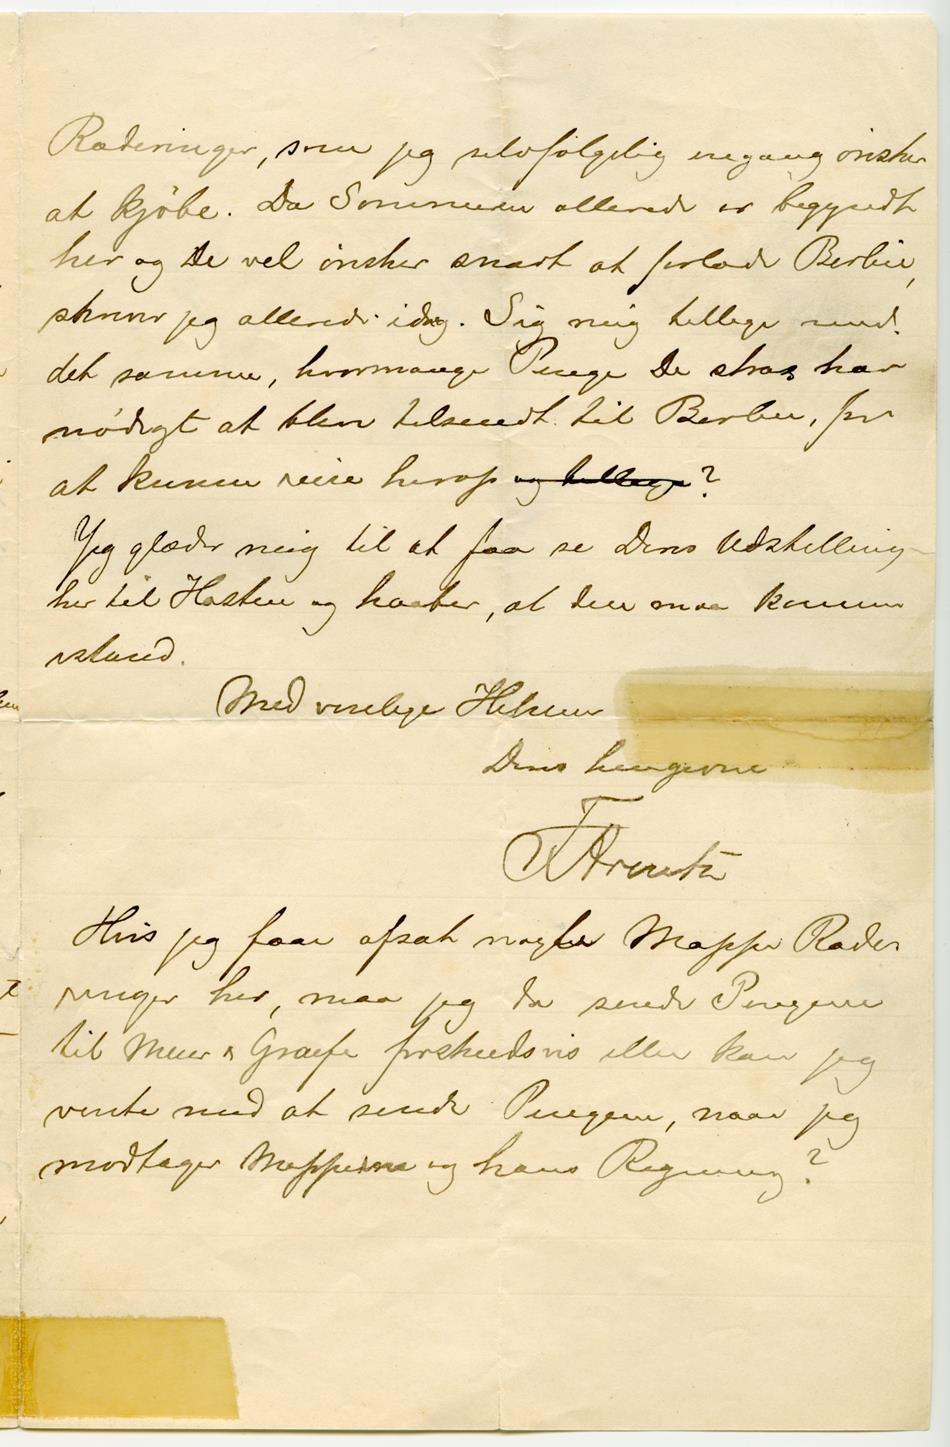 Raderinger, som jeg selvfølgelig engang ønsker
at kjøbe. Da Sommeren allerede er begyndt
her og De vel ønsker snart at forlade Berlin,
skriver jeg allerede idag. Sig mig tillige med
det samme, hvormange Penge De strax har
nødigt at blive tilsendt til Berlin, for
at kunne reise herop og tillige?
Jeg glæder mig til at faa se Deres Udstilling
her til Høsten og haaber, at den maa komme
istand.
Med venlige Hilsener
Deres hengivne
F Arentz
Hvis jeg faar afsat nogle Mapper Rader
ringer her, maa jeg da sende Pengene
til Meier & Graefe forskudsvis eller kan jeg
vente med at sende Pengene, naar jeg
modtager Mapperne og hans Regning?